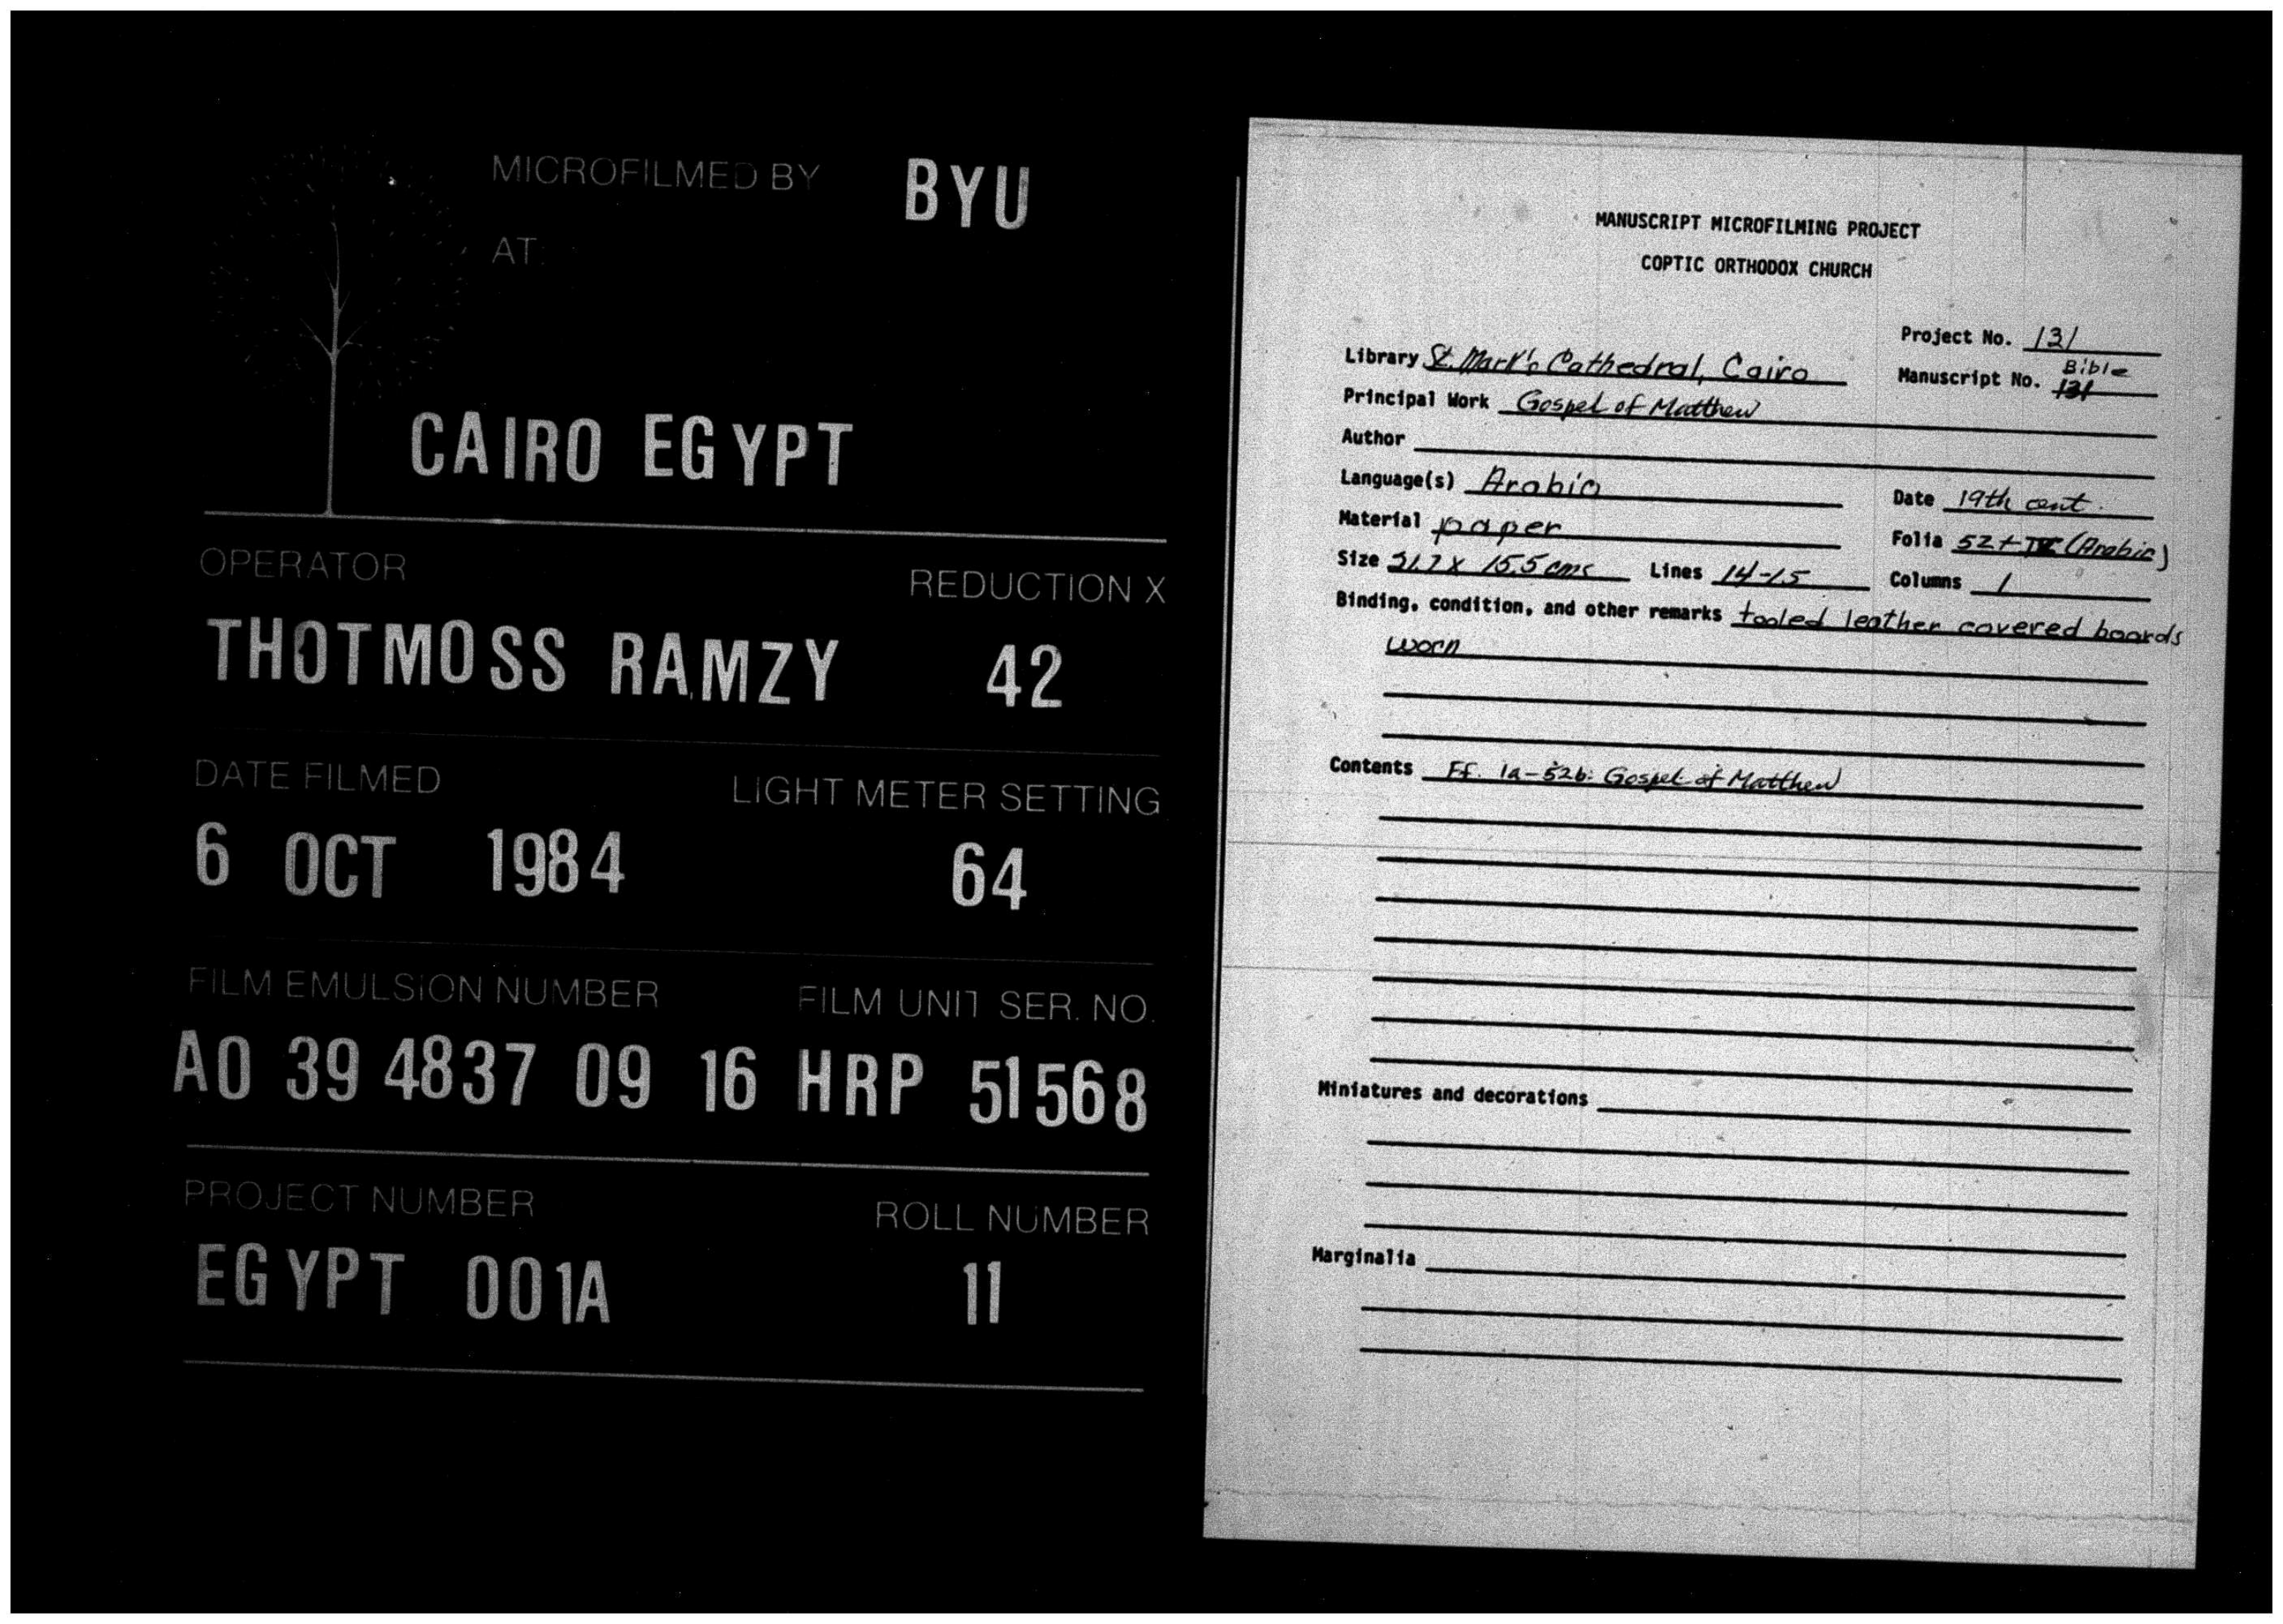 MICROFILMED BY BYU
AT
CAIRO EGYPT
OPERATOR REDUCTION X
THOTMOSS RAMZY 42
DATE FILMED LIGHT METER SETTING
6 OCT 1984 64
FILM EMULSION NUMBER FILM UNIT SER. NO.
A0 39 4837 09 16 HRP 51568
PROJECT NUMBER ROLL NUMBER
EGYPT 001A 11
MANUSCRIPT MICROFILMING PROJECT
COPTIC ORTHODOX CHURCH
Project No. 131
Library St. Mark's Cathedral, Cairo Manuscript No. Bible 131
Principal Work Gospel of Matthew
Author
Language(s) Arabic Date 19th cent.
Material paper Folia 52 + (Arabic)
Size 21.7 x 15.5 cms Lines 14-15 Columns 1
Binding, condition, and other remarks tooled leather covered boards
worn
Contents Ff. 1a-52b: Gospel of Matthew
Miniatures and decorations
Marginalia